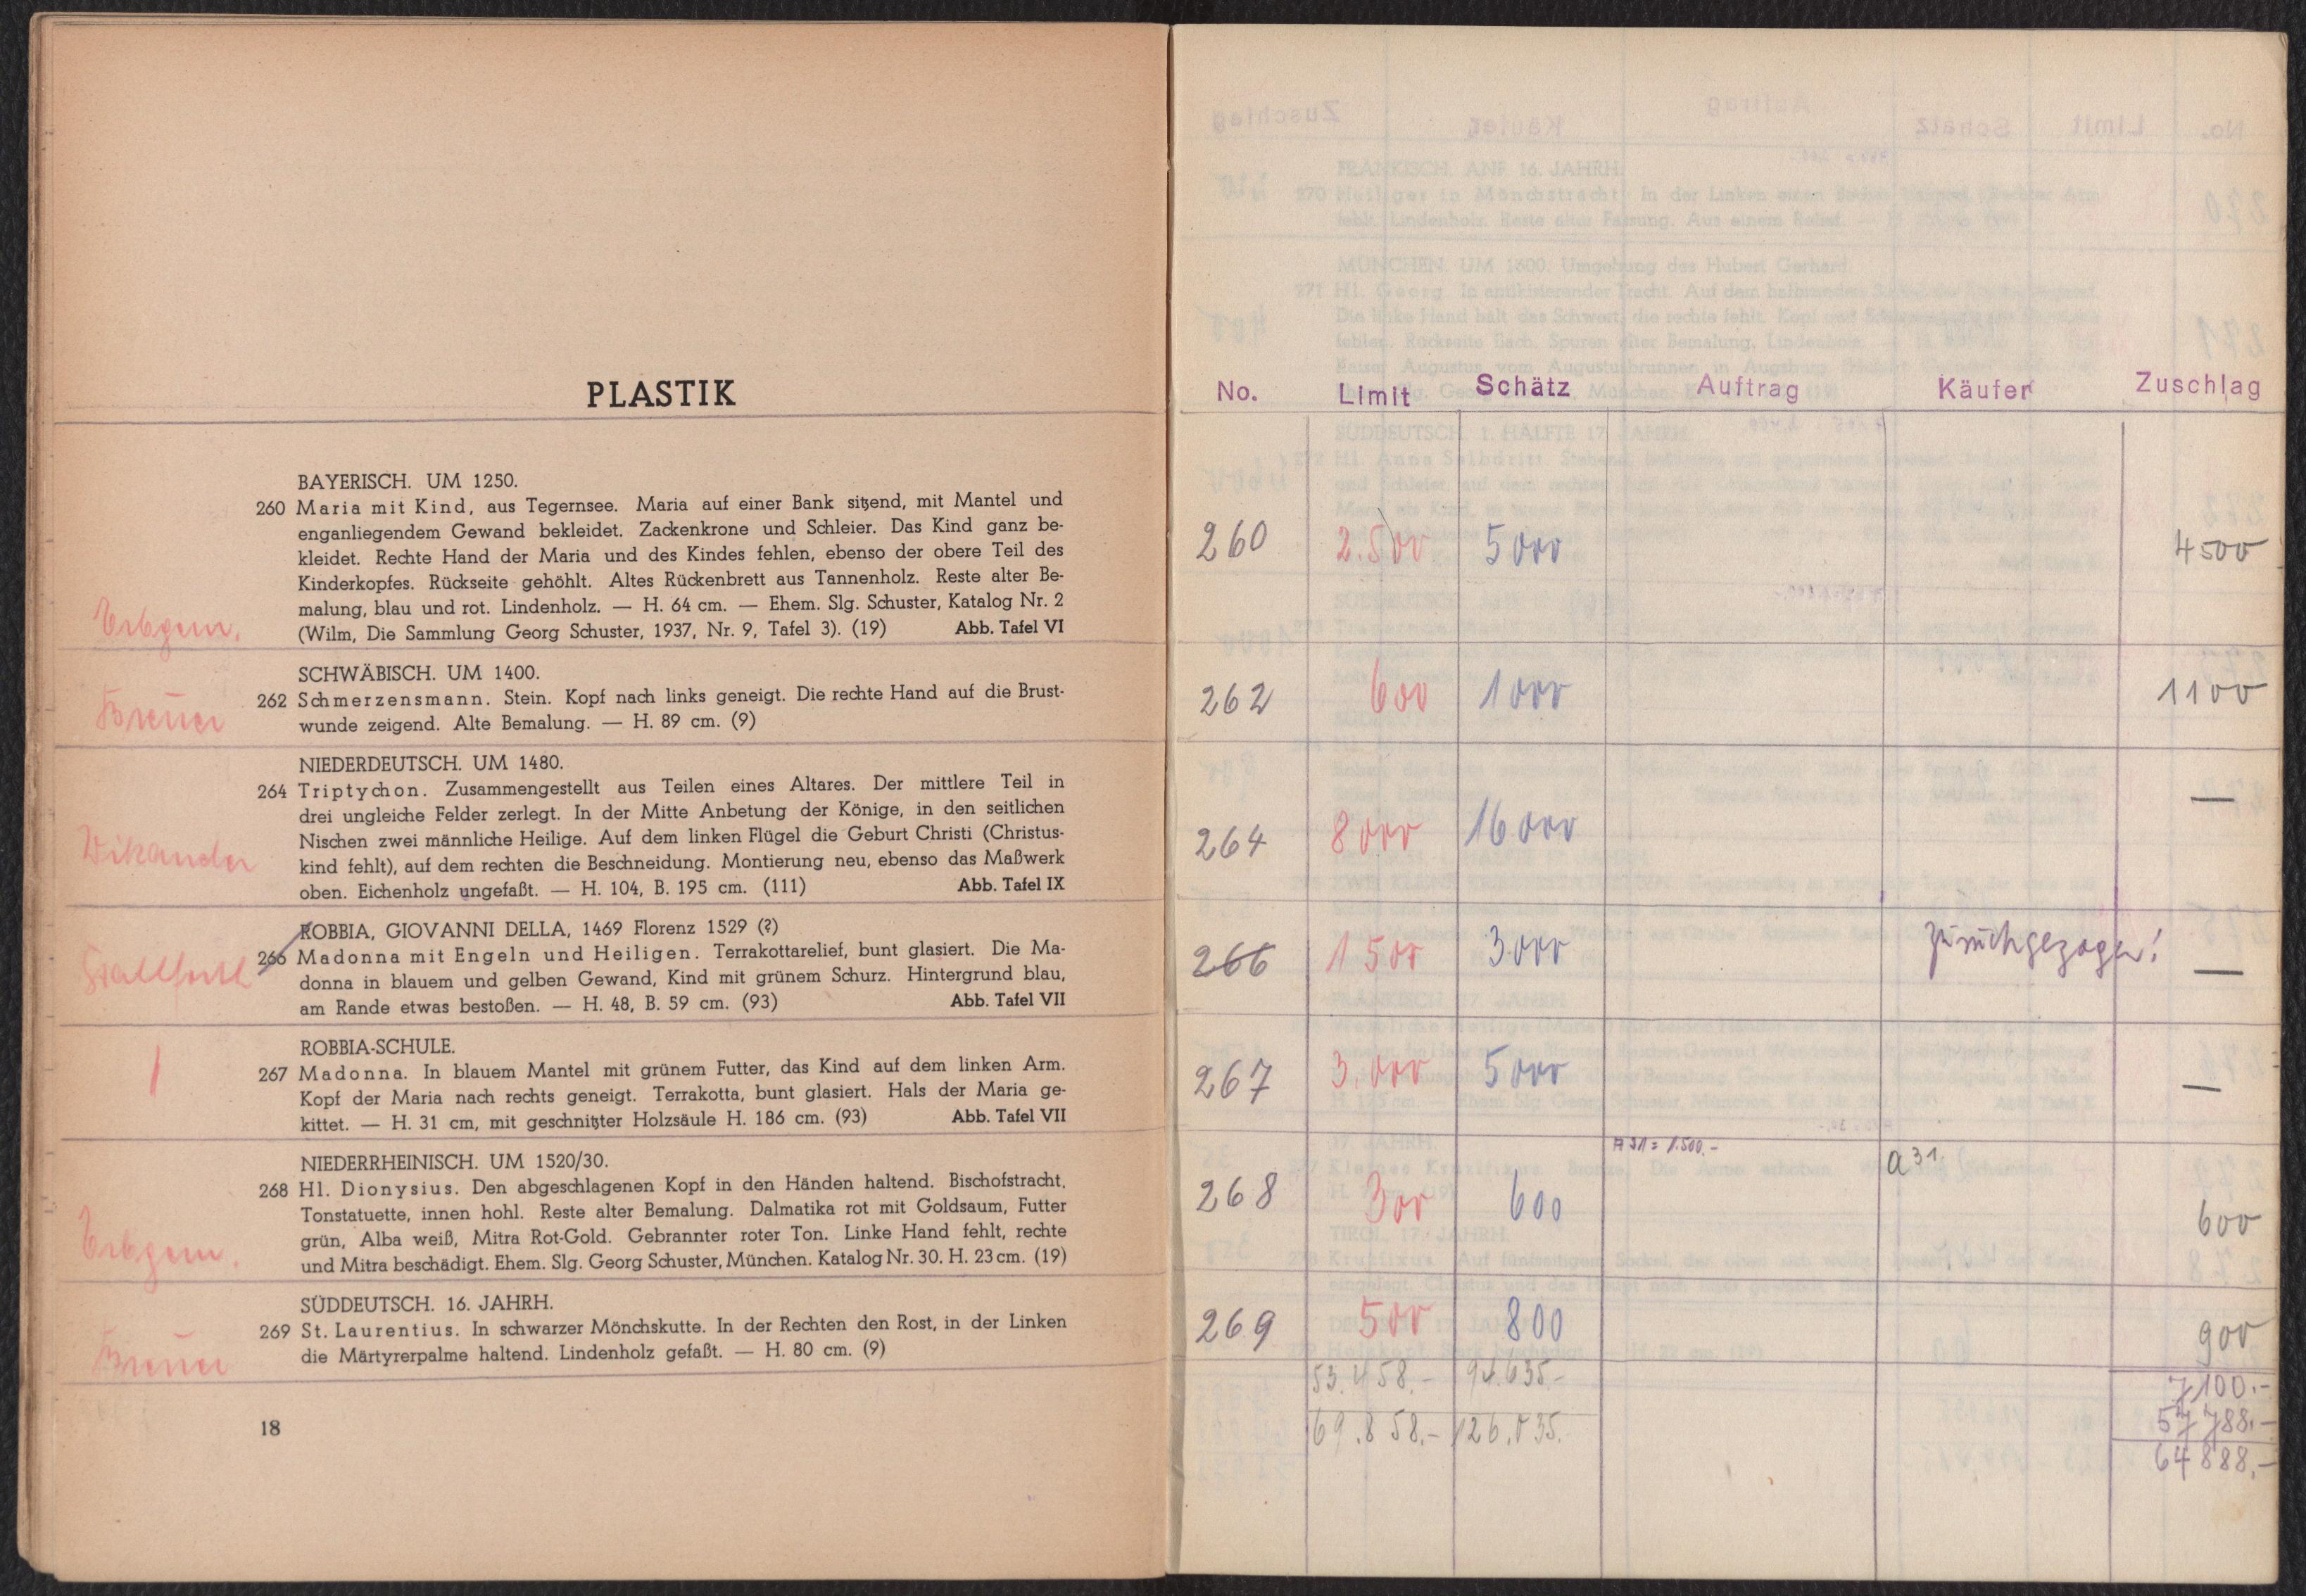 PLASTIK
BAYERISCH. UM 1250.
260 Maria mit Kind, aus Tegernsee. Maria auf einer Bank sitzend, mit Mantel und
enganliegendem Gewand bekleidet. Zackenkrone und Schleier. Das Kind ganz be-
kleidet. Rechte Hand der Maria und des Kindes fehlen, ebenso der obere Teil des
Kinderkopfes. Rückseite gehöhlt. Altes Rückenbrett aus Tannenholz. Reste alter Be-
malung, blau und rot. Lindenholz. — H. 64 cm. — Ehem. Slg. Schuster, Katalog Nr. 2
(Wilm, Die Sammlung Georg Schuster, 1937, Nr. 9, Tafel 3). (19) Abb. Tafel VI
SCHWÄBISCH. UM 1400.
262 Schmerzensmann. Stein. Kopf nach links geneigt. Die rechte Hand auf die Brust-
wunde zeigend. Alte Bemalung. — H. 89 cm. (9)
Breuer
NIEDERDEUTSCH. UM 1480.
264 Triptychon. Zusammengestellt aus Teilen eines Altares. Der mittlere Teil in
drei ungleiche Felder zerlegt. In der Mitte Anbetung der Könige, in den seitlichen
Nischen zwei männliche Heilige. Auf dem linken Flügel die Geburt Christi (Christus-
Wikander
kind fehlt), auf dem rechten die Beschneidung. Montierung neu, ebenso das Maßwerk
oben. Eichenholz ungefaßt. — H. 104, B. 195 cm. (111) Abb. Tafel IX
ROBBIA, GIOVANNI DELLA, 1469 Florenz 1529 (?)
266 Madonna mit Engeln und Heiligen. Terrakottarelief, bunt glasiert. Die Ma-
donna in blauem und gelben Gewand, Kind mit grünem Schurz. Hintergrund blau,
am Rande etwas bestoßen. — H. 48, B. 59 cm. (93) Abb. Tafel VII
ROBBIA-SCHULE.
267 Madonna. In blauem Mantel mit grünem Futter, das Kind auf dem linken Arm.
Kopf der Maria nach rechts geneigt. Terrakotta, bunt glasiert. Hals der Maria ge-
kittet. — H. 31 cm, mit geschnitzter Holzsäule H. 186 cm. (93) Abb. Tafel VII
NIEDERRHEINISCH. UM 1520/30.
268 Hl. Dionysius. Den abgeschlagenen Kopf in den Händen haltend. Bischofstracht,
Tonstatuette, innen hohl. Reste alter Bemalung. Dalmatika rot mit Goldsaum, Futter
grün, Alba weiß, Mitra Rot-Gold. Gebrannter roter Ton. Linke Hand fehlt, rechte
und Mitra beschädigt. Ehem. Slg. Georg Schuster, München. Katalog Nr. 30. H. 23 cm. (19)
SÜDDEUTSCH. 16. JAHRH.
269 St. Laurentius. In schwarzer Mönchskutte. In der Rechten den Rost, in der Linken
die Märtyrerpalme haltend. Lindenholz gefaßt. — H. 80 cm. (9)
Breuer
18
No. Limit Schätz Auftrag Käufer Zuschlag
260 2.500 5000 4500
262 600 1000 1100
264 8000 16000 —
266 1500 3000 zurückgezogen! —
267 3.000 5000 —
A 31 = 1.500.- a 31.
268 300 600 600
269 500 800 900
53.458.- 94.635.- 7100.-
69.858.- 126.035.- 57788.-
64888.-